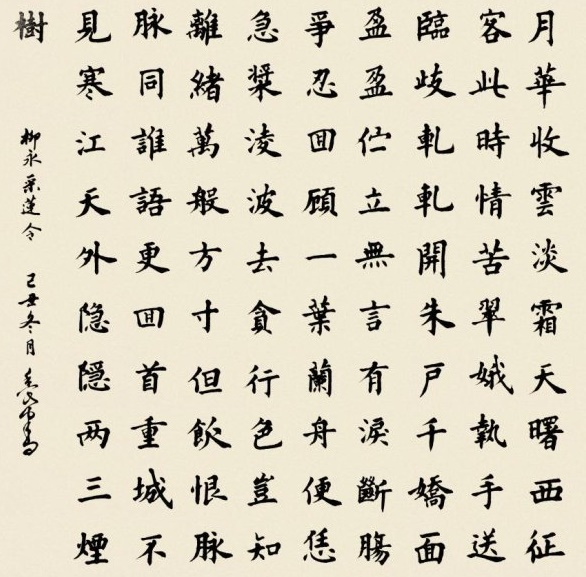 月華收雲淡霜天曙西征
客此時情苦翠娥執手送
臨歧軋軋開朱戶千嬌面
盈盈伫立無言有淚斷腸
爭忍回顧一葉蘭舟便恁
急槳淩波去貪行色豈知
離緒萬般方寸但飲恨脉
脉同誰語更回首重城不
見寒江天外隐隱两三煙
樹
柳永采蓮令 己丑冬月